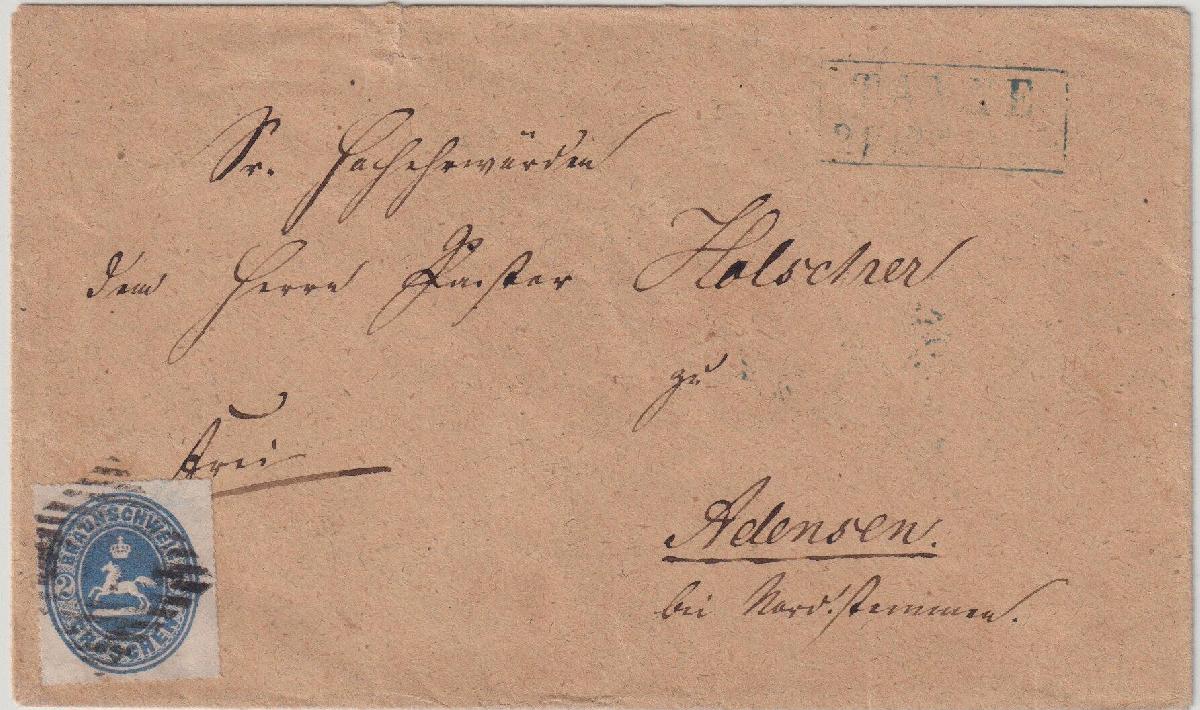 TANNE
Sr. Hochehrwürden
dem Herrn Pastor Holscher
zu
Frei
Adensen.
bei Nordstemmen.
BRAUNSCHWEIG
2
GROSCHEN